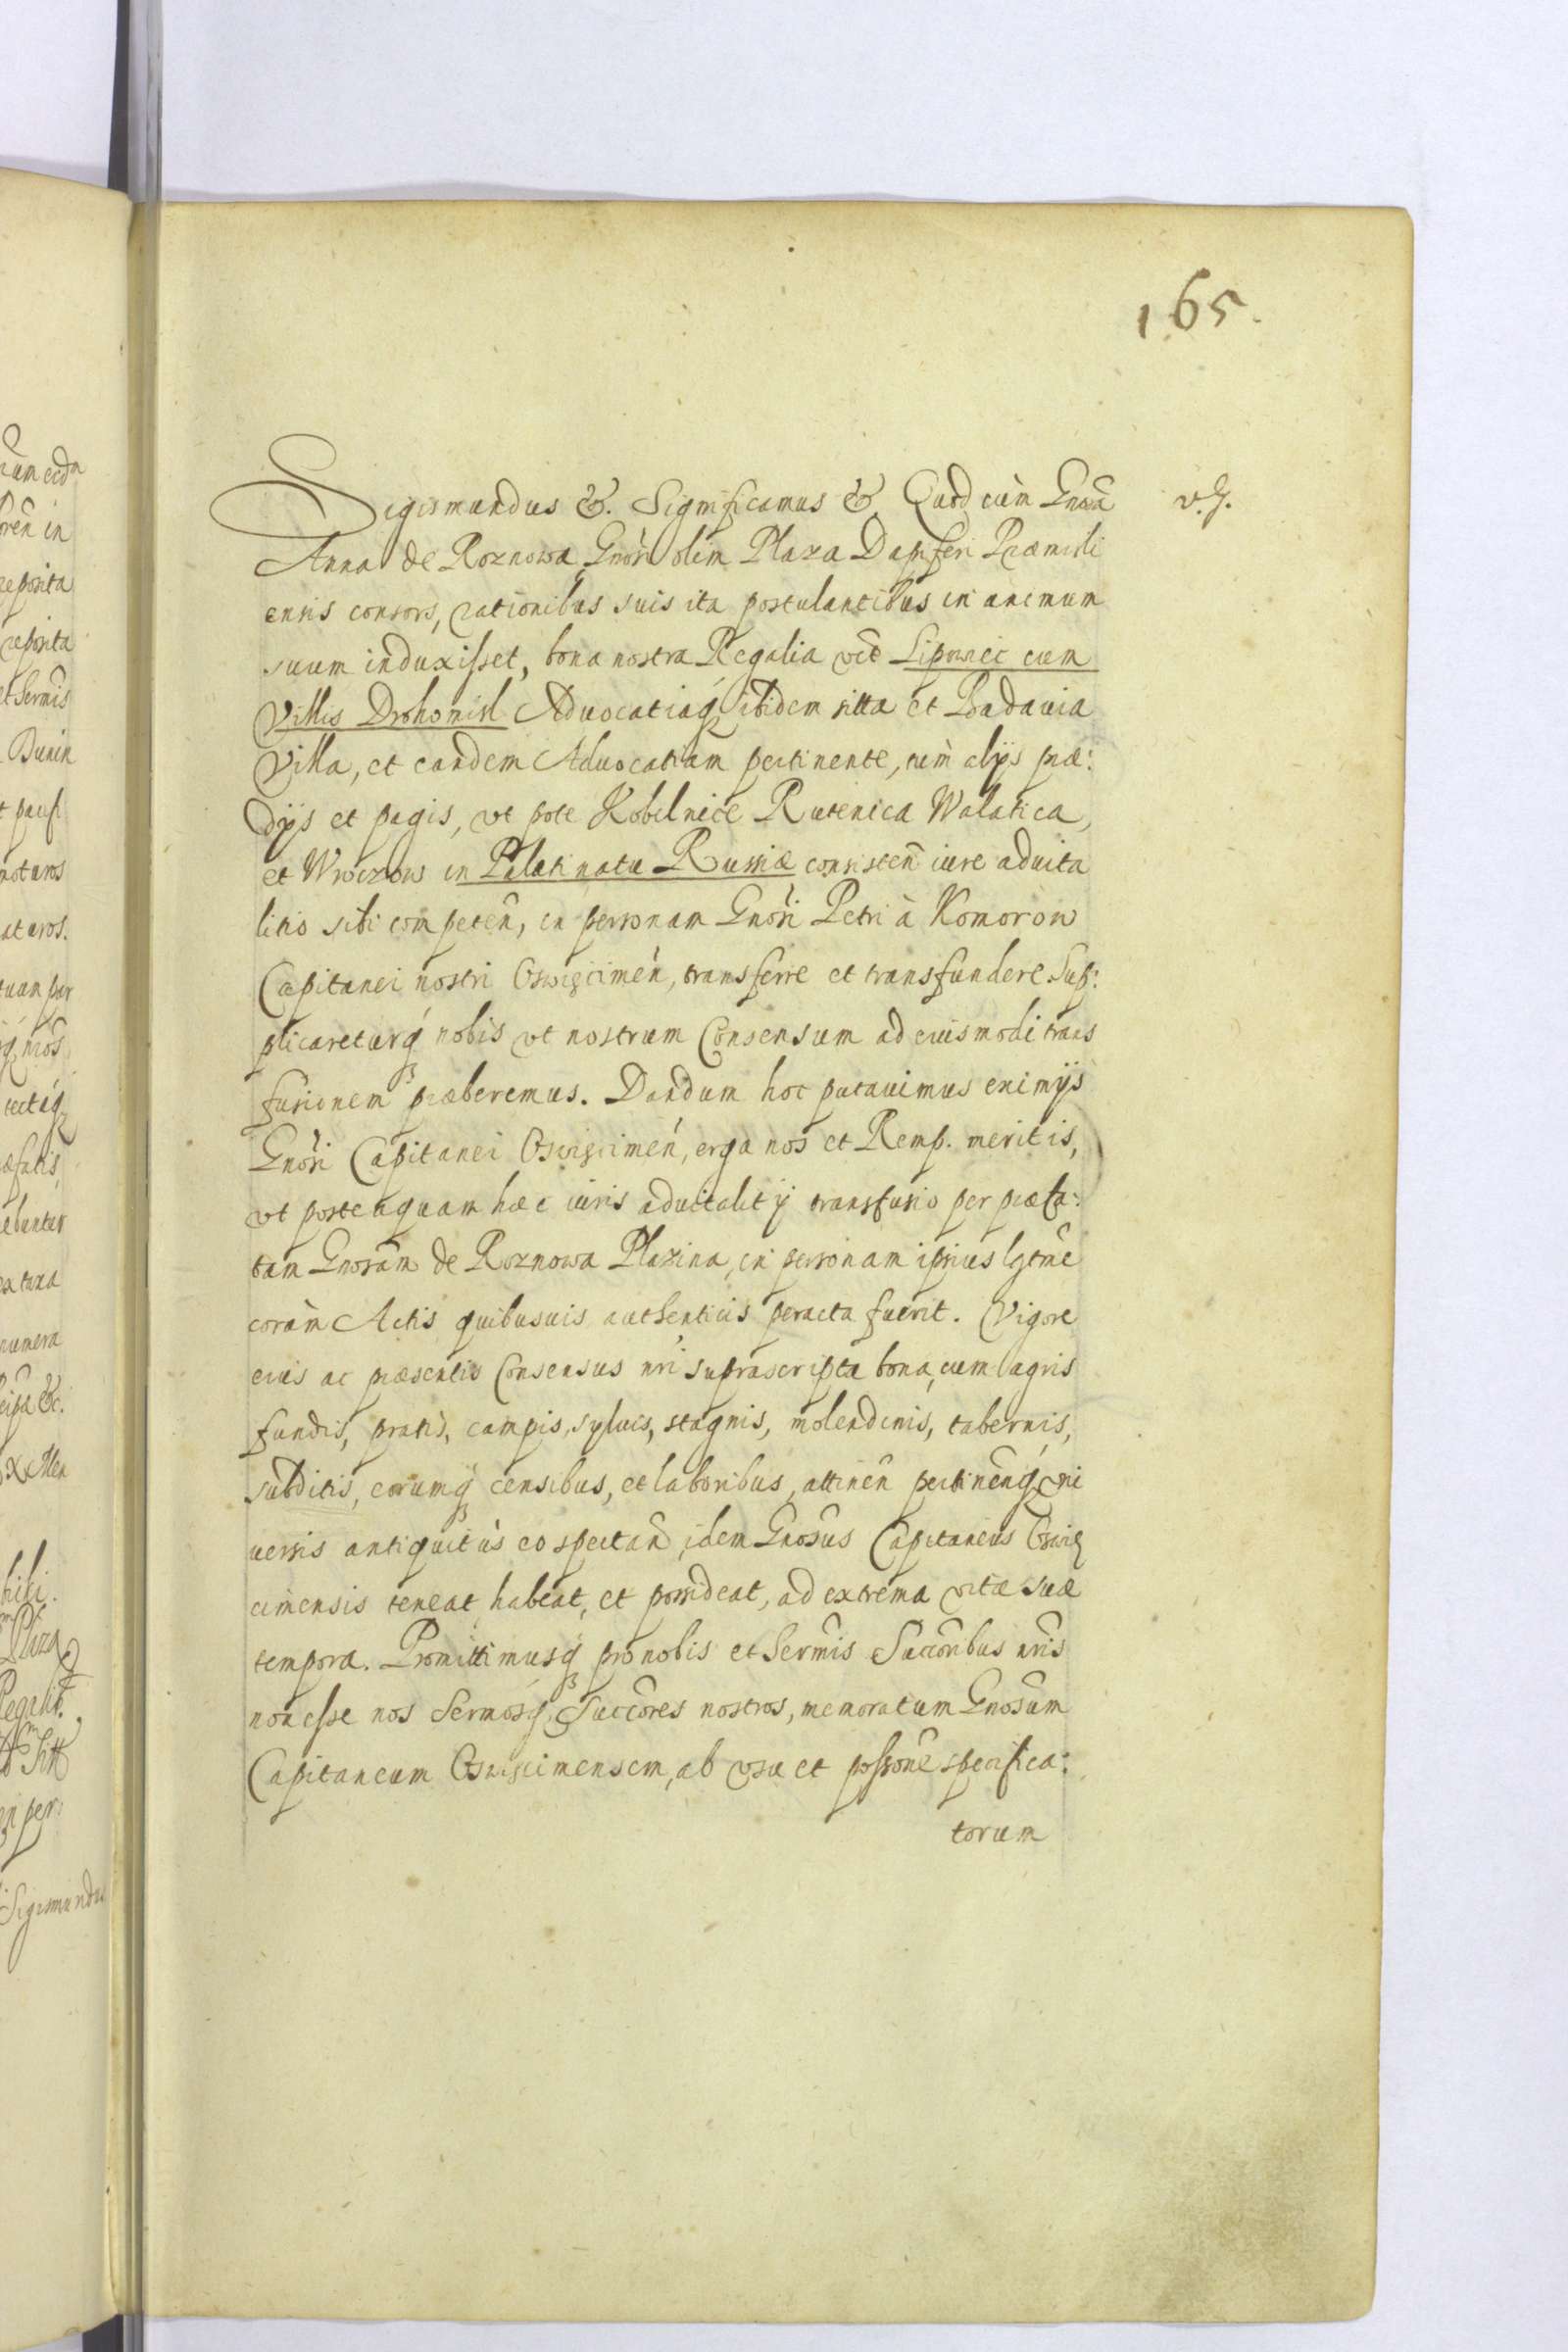 165.
Sigismundus &. Significamus &. Quod cùm Gnosa v. G.
Anna de Roznowa Gnosi olim Plaza Dapiferi Præmisli
ensis consors, rationibus suis ita postulantibus in animum
suum induxisset, bona nostra Regalia vct Lipowiec cum
Villis Drohomisl Advocatiaq ibidem sitta et Badavia
Villa, et eandem Advocatiam pertinente, cum alijs præ:
dijs et pagis, vt pote Kobelnice Rutenica Walatica,
et Wroczow in Palatinatu Russiæ consisten iure aduita
litio sibi competen, in personam Gnosi Petri à Komorow
Capitanei nostri Oswiecimen, transferre et transfundere Sup:
plicareturq nobis vt nostrum Consensum ad eiusmodi trans
fusionem præberemus. Dandum hoc putauimus eximijs
Gnosi Capitanei Oswiecimen, erga nos et Remp. meritis,
vt posteaquam hæc iuris aduitalitij transfusio per præfa:
tam Gnosam de Roznowa Plazina, in personam ipsius lgtme
coràm Actis quibusuis authenticis peracta fuerit. Vigore
eius ac præsentis Consensus nri suprascripta bona, cum agris
fundis, pratis, campis, syluis, stagnis, molendinis, tabernis,
subditis, eorumq censibus, et laboribus, attinen pertinenq vni
uersis antiquitùs eo spectan, idem Gnosus Capitaneus Oswie
cimensis teneat habeat, et possideat, ad extrema vitæ suæ
tempora. Promittimusq pro nobis et Sermis Succoribus nris
non esse nos Sermosq Succores nostros, memoratum Gnosum
Capitaneum Oswiecimensem, ab vsu et possone specifica:
torum